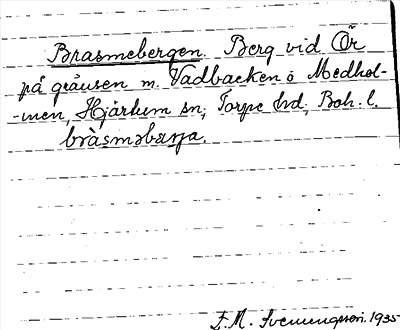 Brasmebergen. Berg vid Ör
på gränsen m. Vadbacken o Medhol-
-men, Hjärtum sn; Torpe hd, Boh. l.
bràsməbærja.
F.M. Svenungsson. 1935